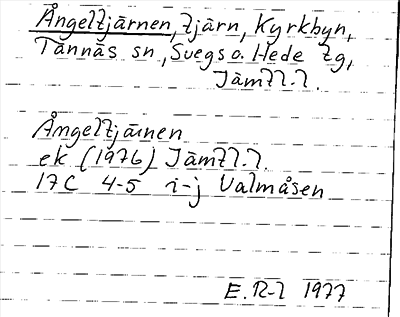 Ångeltjärnen, tjärn, Kyrkbyn,
Tännäs sn, Svegs o. Hede tg,
Jämtl. l.
Ångeltjärnen
ek (1976) Jämtl. l.
17C 4-5 i-j Valmåsen
E. R-l 1977